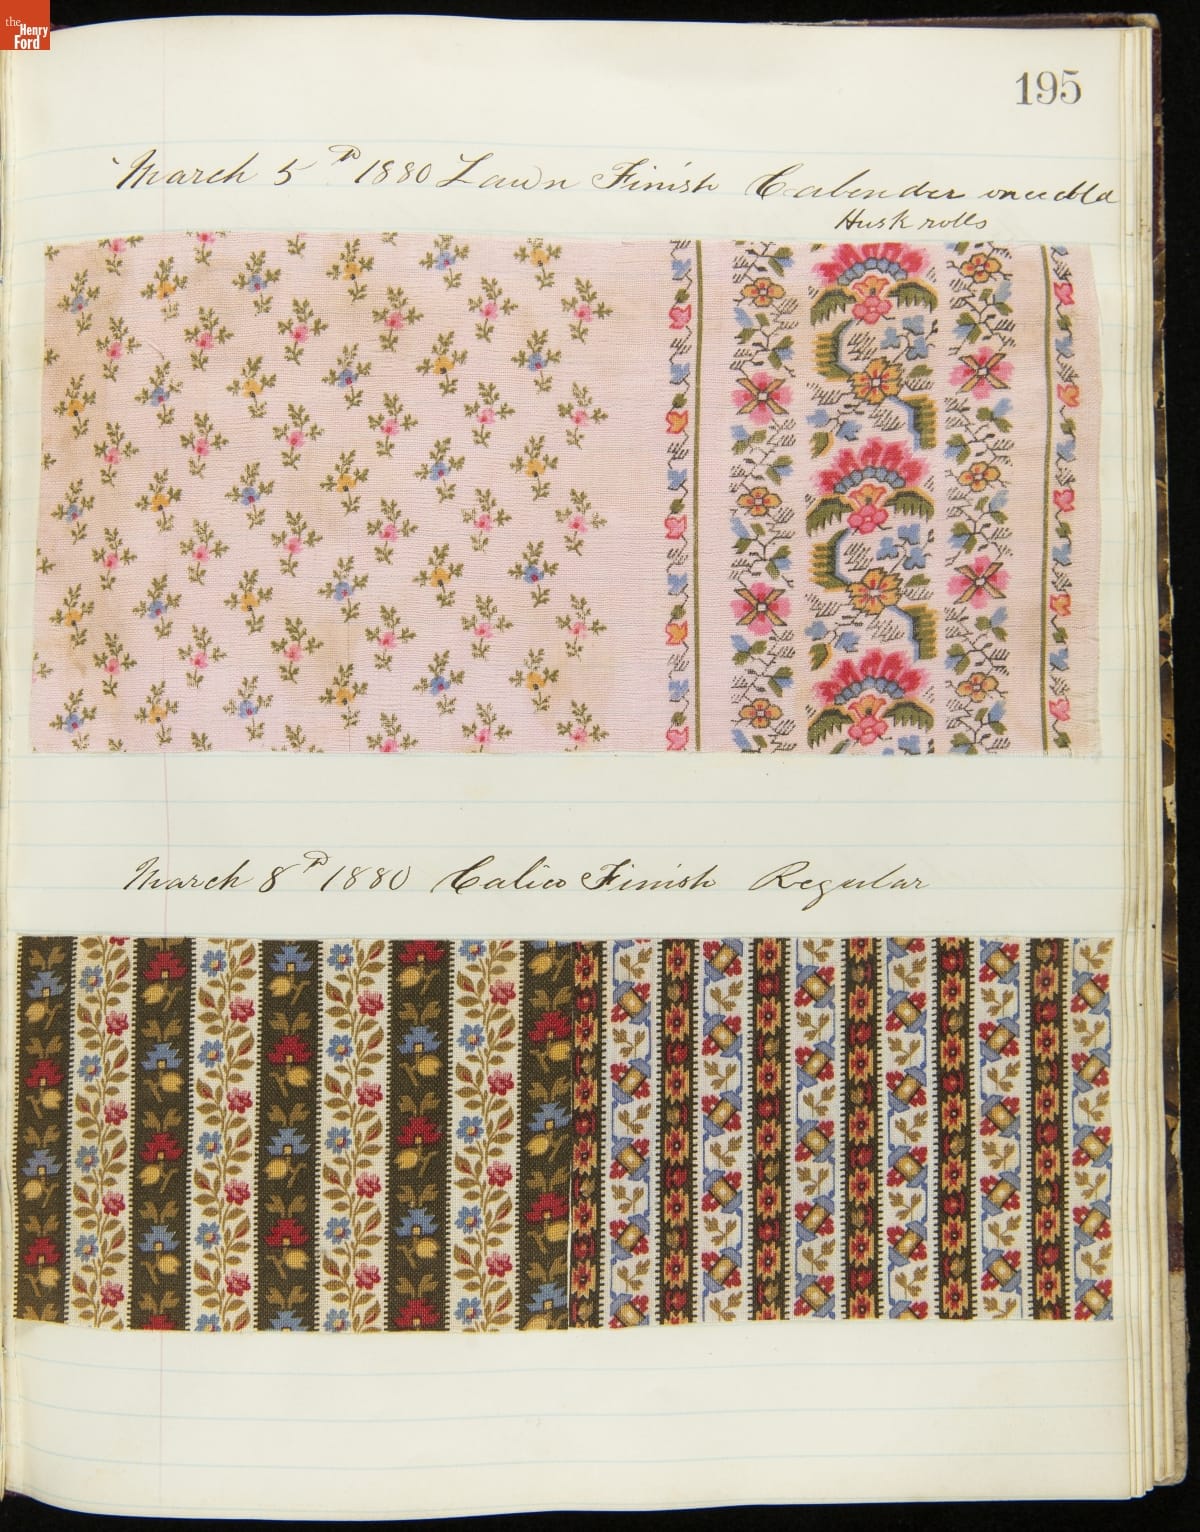 the
Henry
Ford
195
March 5th 1880 Lawn Finish Calender once cold
Husk rolls
March 8th 1880 Calico Finish Regular